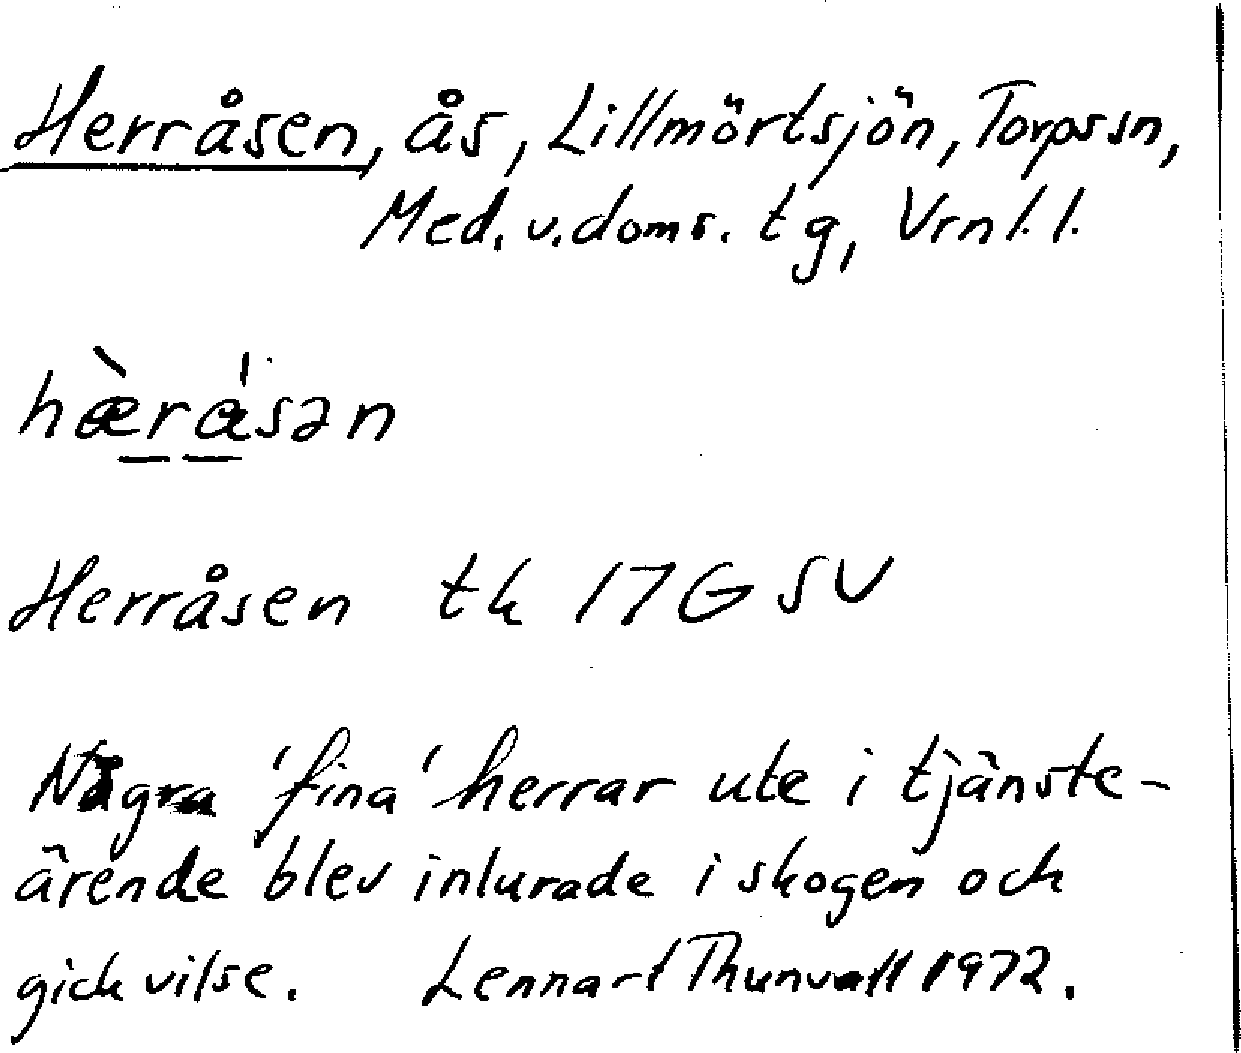 Herråsen, ås, Lillmörtsjön, Torps sn,
Med. v. doms. tg, Vrnl. l.
hæ̀rå̀sən
Herråsen tk 17G SV
Några 'fina' herrar ute i tjänste-
ärende blev inlurade i skogen och
gick vilse. Lennart Thunvall 1972.